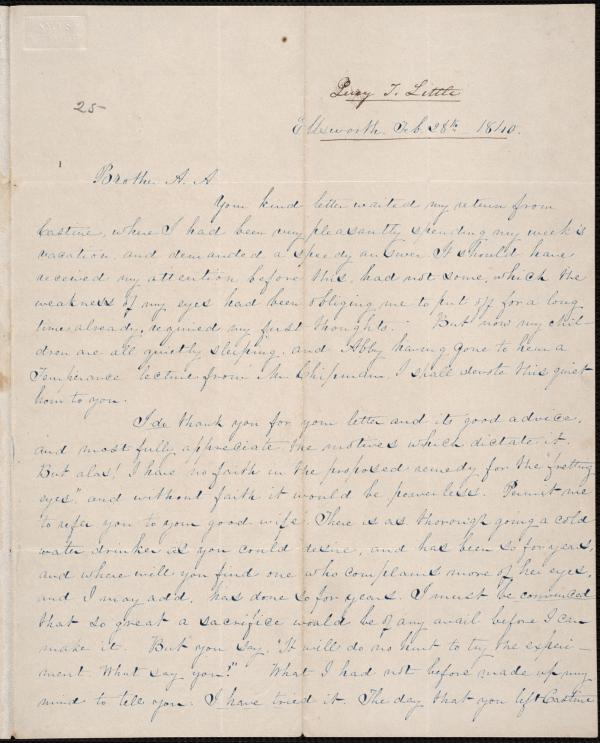 25
T. Little
Ellsworth. Feb. 28th 1840.
Brother A. A
Your kind letter waited my return from
Castine, where I had been very pleasantly spending my week's
vacation, and demanded a speedy answer. It should have
received my attention before this, had not some, which the
weakness of my eyes had been obliging me to put off for a long
time already, required my first thoughts. - But now my chil-
dren are all quietly sleeping, and Abby having gone to hear a
Temperance lecture from Mr Chipman, I shall devote this quiet
hour to you.
I do thank you for your letter and its good advice,
and most fully appreciate the motives which dictate it.
But alas! I have no faith in the proposed remedy for the "fretting
eyes", and without faith it would be powerless. Permit me
to refer you to your good wife. There is as thorough going a cold
water drinker as you could desire, and has been so for years,
and where will you find one who complains more of her eyes,
and I may add, has done so for years. I must be convinced
that so great a sacrifice would be of any avail before I can
make it. But you say, "It will do no hurt to try the experi-
ment. What say you?" What I had not before made up my
mind to tell you. I have tried it. The day that you left Castine